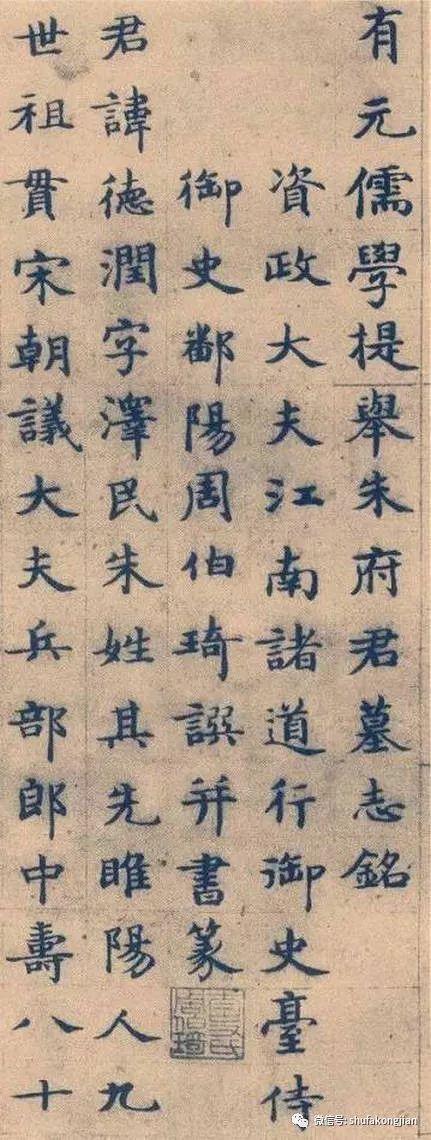 有元儒學提舉朱府君墓志銘
資政大夫江南諸道行御史臺侍
御史鄱陽周伯琦譔并書篆
君諱德潤字澤民朱姓其先睢陽人九
世祖貫宋朝議大夫兵部郎中壽八十
微信号: shufakongjian